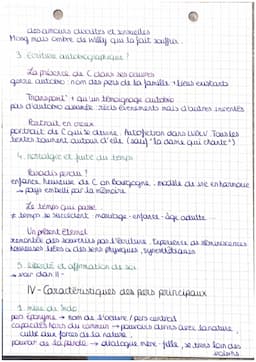 des amours saphiques et sensuelles
Mais ombre de Willy qui la fait souffrir.
3. Écriture autobiographique?
La présence de C dans ses œuvres
genre autobio : nom des pers de la famille + lieux existants
Transport + qu'un témoignage autobio
pas d'autobio assumée récits événements mais d'autres inventés
Portrait en creux
portrait de C qui se dessine. Autofiction dans
textes tournent autour d'elle (sauf "la dame qui chante")
4. nostalgie et fuite du temps
Paradis perdu?
enfance heureuse de C en Bourgogne, modèle de vie en harmonie
→ pays embelli par la mémoire
Le temps qui passe
temps se succèdent - mariage - enfants - âge adulte
Un présent éternel
remontée des souvenirs par l'écriture. Expérience de réminiscences
heureuses liées à des sens physiques, synesthésiques
5. liberté et affirmation de soi
→ voir dans II -
IV - Caractéristiques des pers principaux
1. mère de
pers éponyme → nom de l'œuvre / pers central
capacités hors du commun → pouvoirs divins avec la nature,
culte aux forces de la nature,
pouvoir de la parole → dialogue mère-fille,